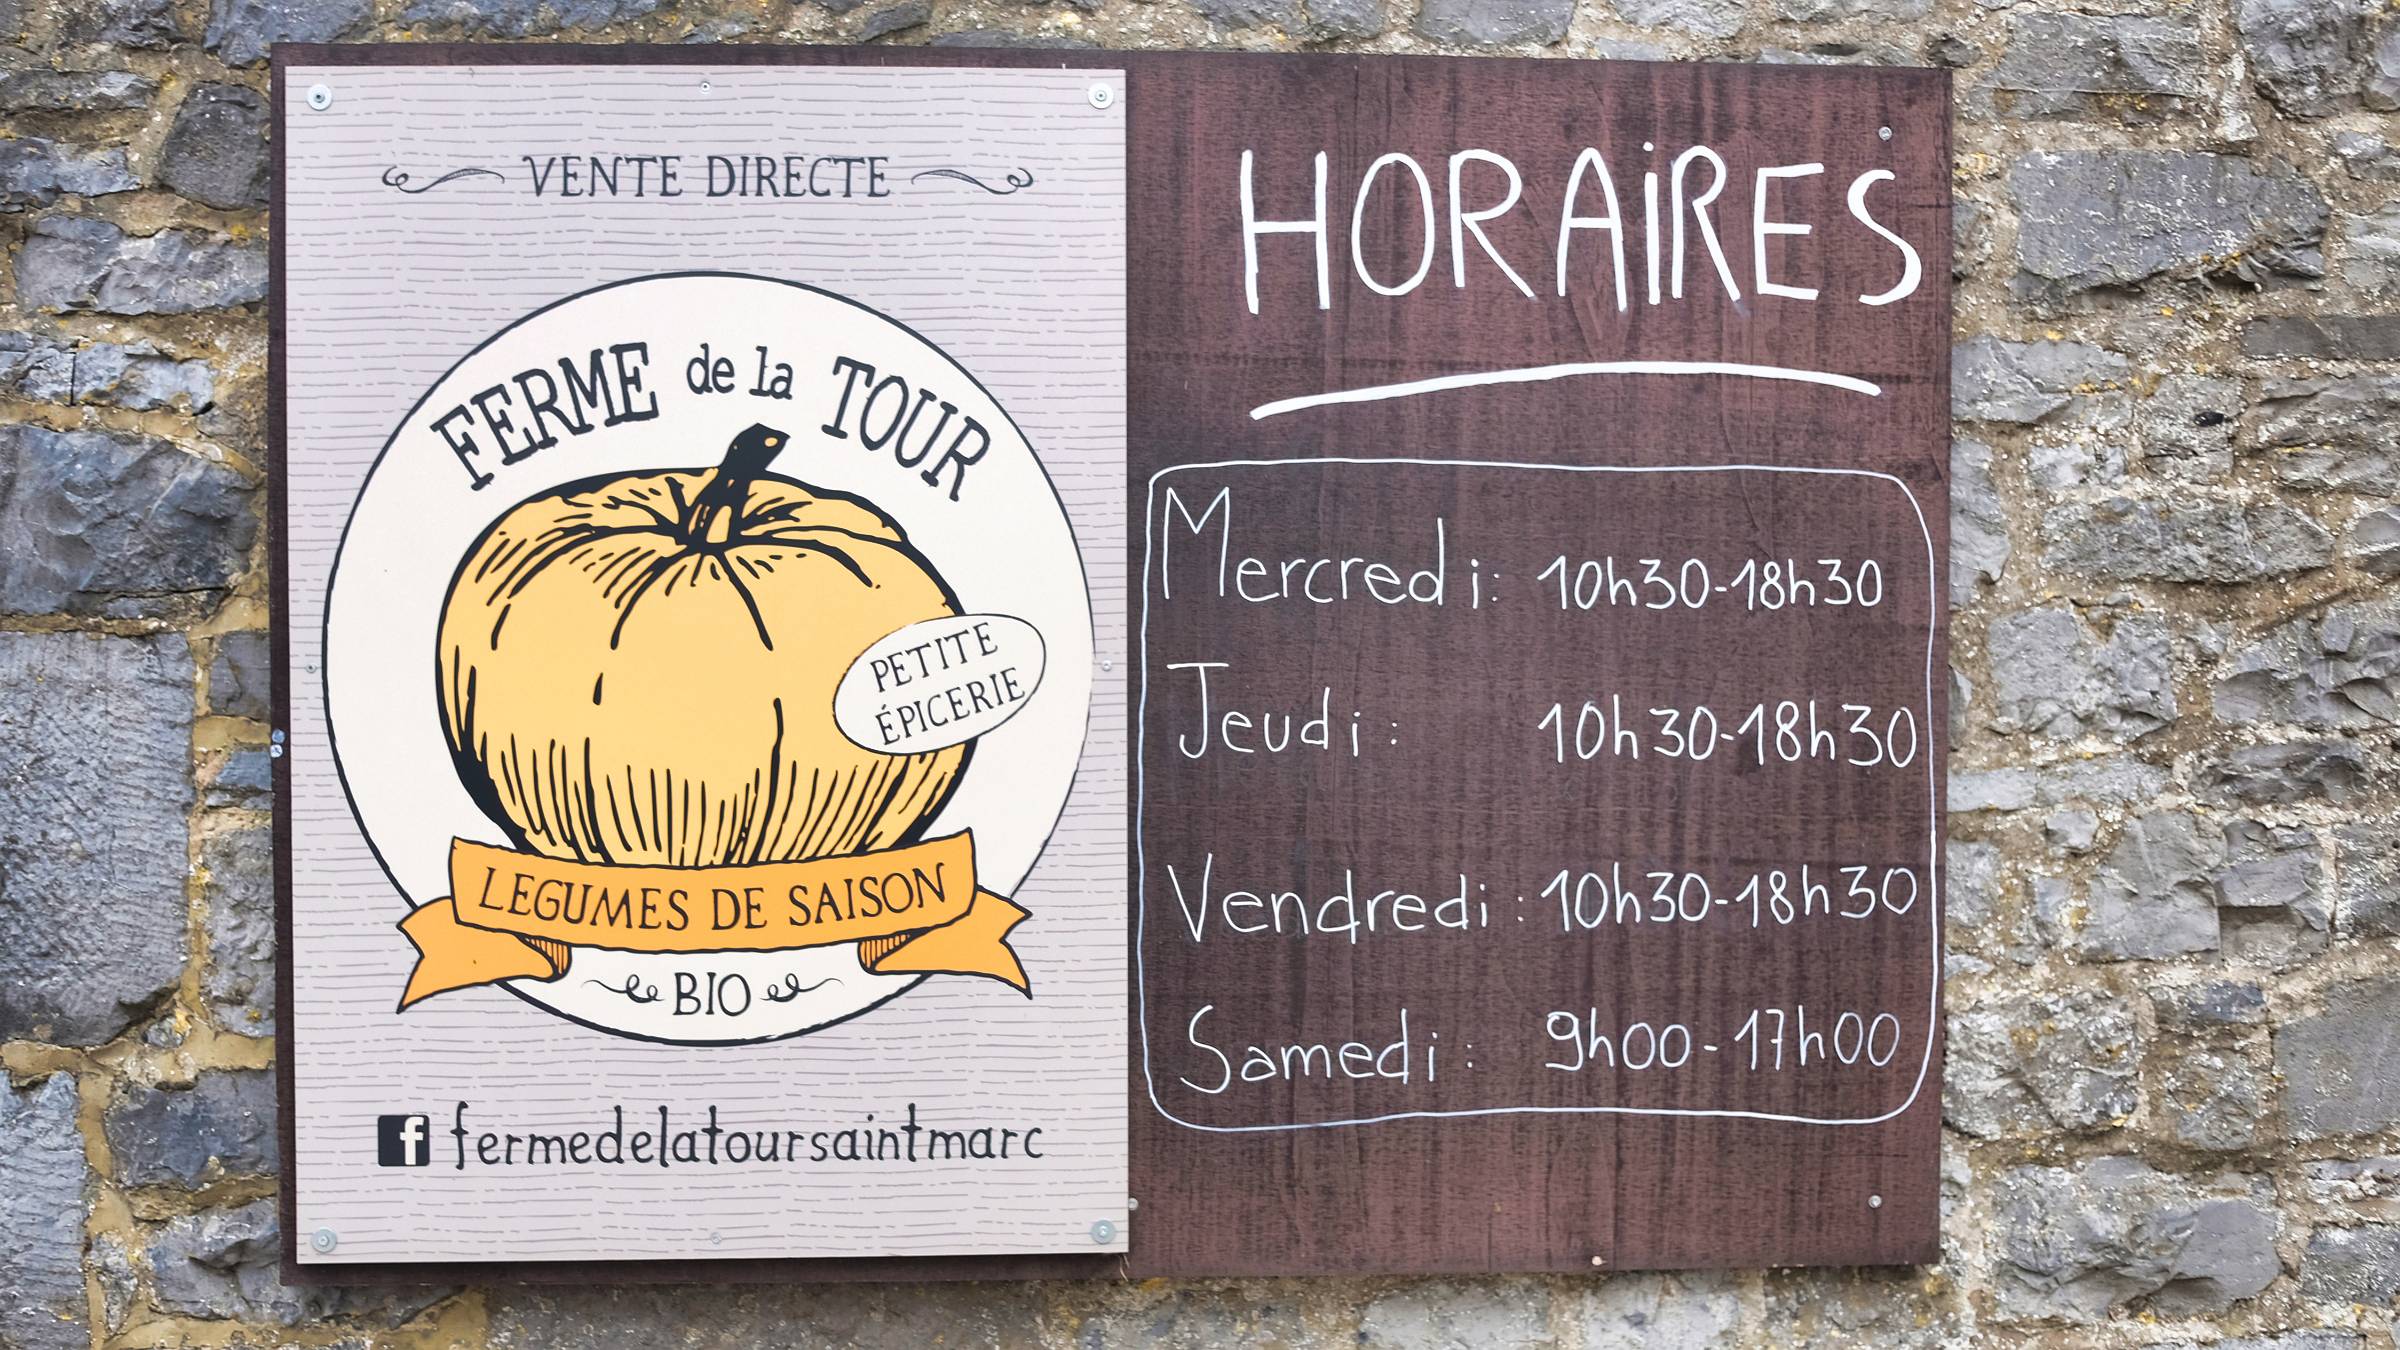 VENTE DIRECTE
FERME de la TOUR
PETITE
ÉPICERIE
LEGUMES DE SAISON
BIO
f fermedelatoursaintmarc
HORAiRES
Mercredi: 10h30-18h30
Jeudi: 10h30-18h30
Vendredi: 10h30-18h30
Samedi: 9h00-17h00